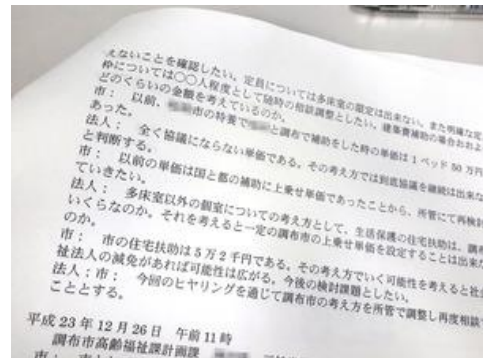 えないことを確認したい。定員については多床室の限定は出来ない。また明確な定
枠については○○人程度として随時の相談調整としたい。建築費補助の場合おおよ
どのくらいの金額を考えているのか。
市： 以前、 市の特養で と調布で補助をした時の単価は1ベッド50万円
あった。
法人： 全く協議にならない単価である。その考え方では到底協議を継続は出来な
と判断する。
市： 以前の単価は国と都の補助に上乗せ単価であったことから、所管にて再検討
ていきたい。
法人： 多床室以外の個室についての考え方として、生活保護の住宅扶助は、調布
いくらなのか。それを考えると一定の調布市の上乗せ単価を設定することは出来な
のか。
市： 市の住宅扶助は5万2千円である。その考え方でいく可能性を考えると社会
祉法人の減免があれば可能性は広がる。今後の検討課題としたい。
法人：市： 今回のヒヤリングを通じて調布市の考え方を所管で調整し再度相談
こととする。
平成23年12月26日 午前11時
調布市高齢福祉課計画課